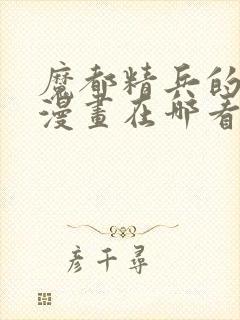 魔都精兵的
漫畫在哪看
彦千尋